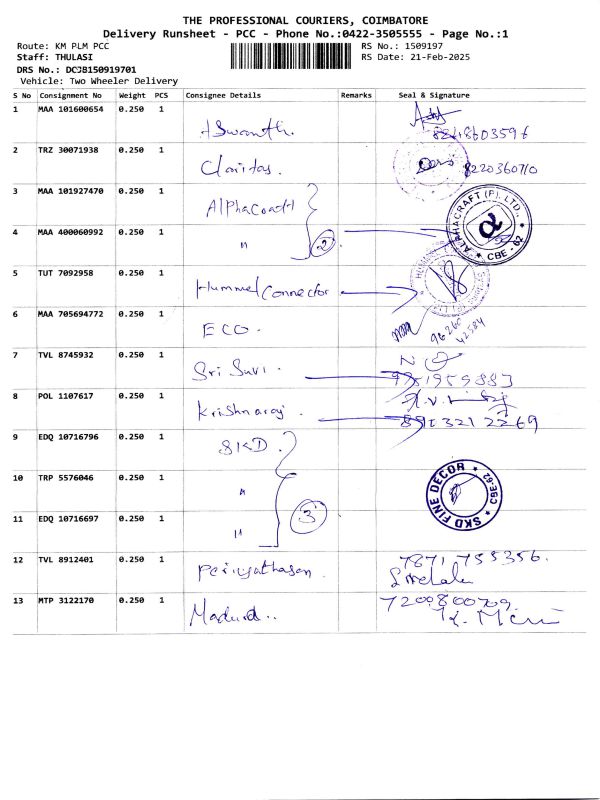 THE PROFESSIONAL COURIERS, COIMBATORE
Delivery Runsheet - PCC - Phone No.:0422-3505555 - Page No.:1
Route: KM PLM PCC RS No.: 1509197
Staff: THULASI RS Date: 21-Feb-2025
DRS No.: DCJB150919701
Vehicle: Two Wheeler Delivery
S No Consignment No Weight PCS Consignee Details Remarks Seal & Signature
1 MAA 101600654 0.250 1 ISwanth.
2 TRZ 30071938 0.250 1 Claritas. 8220360710
3 MAA 101927470 0.250 1 AlphaCraft
4 MAA 400060992 0.250 1 " 2 ALPHACRAFT (P). LTD., CBE - 62
5 TUT 7092958 0.250 1 Hummel Connector
6 MAA 705694772 0.250 1 ECO.
7 TVL 8745932 0.250 1 Sri Suvi.
8 POL 1107617 0.250 1 Krishnaraj.
9 EDQ 10716796 0.250 1 SKD
10 TRP 5576046 0.250 1 " SKD FINE DECOR CBE-62
11 EDQ 10716697 0.250 1 " 3
12 TVL 8912401 0.250 1 Periyathasan. 7871 755356.
13 MTP 3122170 0.250 1 7200800709.